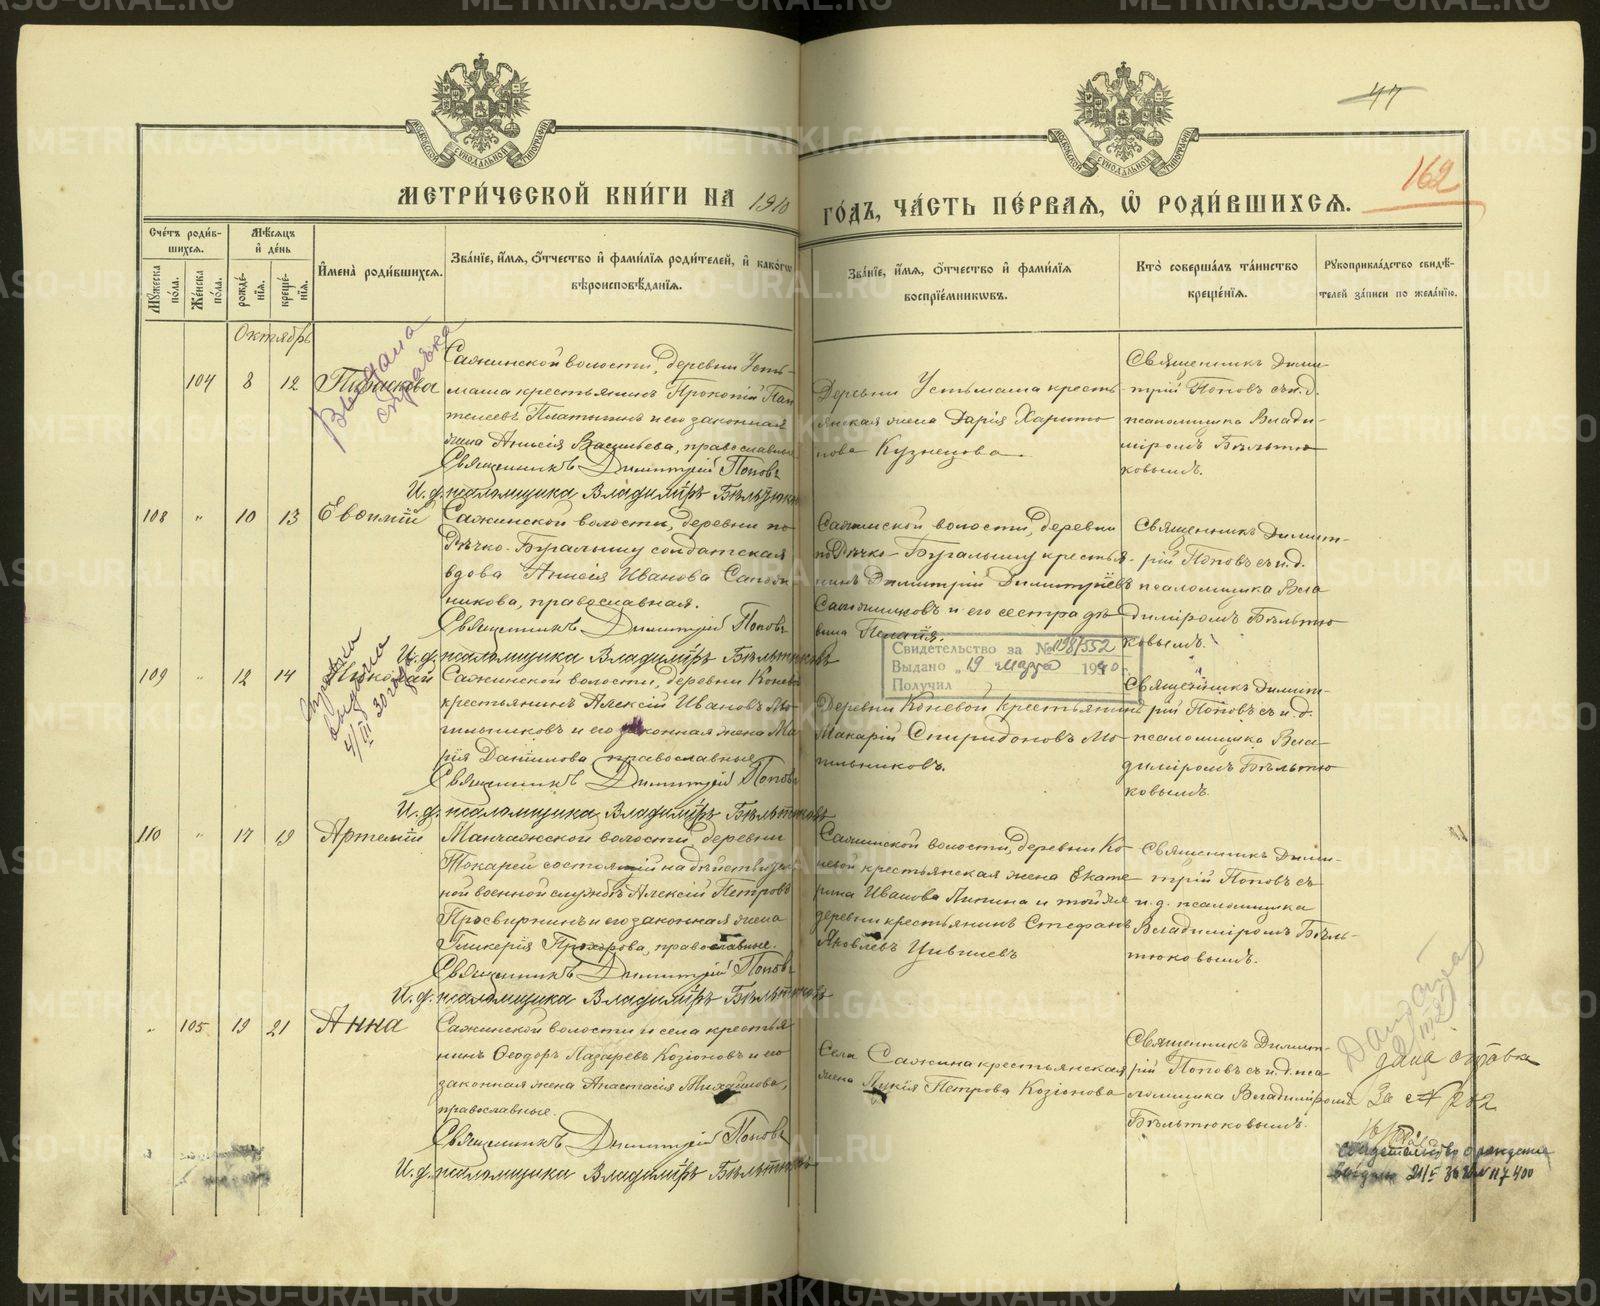 МЕТРИ́ЧЕСКОЙ КНИ́ГИ НА 1910 ГО́ДЪ, ЧА́СТЬ ПЕ́РВАЯ, Ѡ҆ РОДИ́ВШИХСЯ.
47
162
МОСКОВСКОЙ СѴНОДАЛЬНОЙ ТИПОГРАФІИ
МОСКОВСКОЙ СѴНОДАЛЬНОЙ ТИПОГРАФІИ
Сче́тъ роди́вшихся.
Мꙋ́жеска по́ла.
Же́нска по́ла.
Мѣ́сяцъ и҆ де́нь
рожде́нїя.
креще́нїя.
И҆мена̀ роди́вшихся.
Зва́нїе, и҆́мя, ѻ҆́тчество и҆ фами́лїя роди́телей, и҆ како́гѡ
вѣроисповѣ́данїя.
Зва́нїе, и҆́мя, ѻ҆́тчество и҆ фами́лїя
воспрїе́мникѡвъ.
Кто̀ соверша́лъ та́инство
креще́нїя.
Рꙋкоприкла́дство свидѣ́телей за́писи по жела́нїю.
Октябрь
Выдана
справка
104 8 12
Сажинской волости, деревни Усть-
маша крестьянинъ Прокопій Пан
телеевъ Платыгинъ и его законная
жена Анисія Васильева, православные
Священникъ Димитрій Поповъ
И. д. псаломщика Владиміръ Бѣльтюковъ
Деревни Устьмаша кресть
янская жена Дарія Харито
нова Кузнецова
Священникъ Дими-
трій Поповъ съ и. д.
псаломщика Влади-
міромъ Бѣльтю
ковымъ.
108 " 10 13 Евфимій
Сажинской волости, деревни по-
Рѣчко-Бугалышу солдатская
вдова Анисія Иванова Сапож
никова, православная.
Священникъ Димитрій Поповъ
И. д. псаломщика Владиміръ Бѣльтюковъ
Сажинской волости, деревни
по Рѣчко-Бугалышу крестья-
нинъ Димитрій Димитріевъ
Сапожниковъ и его сестра дѣ
вица Пелагія.
Священникъ Димит-
рій Поповъ съ и. д.
псаломщика Вла
диміромъ Бѣльтю
ковымъ.
Свидетельство за № 1198/552
Выдано „19 марта 1940
Получил
Справка
выдана
4/III 30 года
109 " 12 14 Николай
Сажинской волости, деревни Конева
крестьянинъ Алексій Ивановъ Мы
тыльниковъ и его законная жена Ма
рія Даніилова православные
Священникъ Димитрій Поповъ
И. д. псаломщика Владиміръ Бѣльтюковъ
Деревни Коневой крестьянинъ
Макарій Спиридоновъ
Священникъ Димит-
рій Поповъ съ и. д.
псаломщика Вла-
диміромъ Бѣльтю
ковымъ.
110 " 17 19 Артемій
Манчажской волости, деревни
Токарей состоящій на дѣйствитель
ной военной службѣ Алексій Петровъ
Просвирнинъ и его законная жена
Гликерія Прохорова, православные.
Священникъ Димитрій Поповъ
И. д. псаломщика Владиміръ Бѣльтюковъ
Сажинской волости, деревни Ко
невой крестьянская жена Екате
рина Иванова Липина и той же
деревни крестьянинъ Стефанъ
Яковлевъ
Священникъ Дими-
трій Поповъ съ
и. д. псаломщика
Владиміромъ Бѣль-
тюковымъ.
" 105 19 21 Анна
Сажинской волости и села крестья
нинъ Ѳеодоръ Лазаревъ Козіоновъ и его
законная жена Анастасія Михайлова,
православные.
Священникъ Димитрій Поповъ
И. д. псаломщика Владиміръ Бѣльтюковъ
Села Сажина крестьянская
жена Лукія Петрова Козіонова
Священникъ Димит-
рій Поповъ съ и. д. пса-
ломщика Владиміромъ
Бѣльтюковымъ.
дана справка
За № 202
Свидетельство о рождении